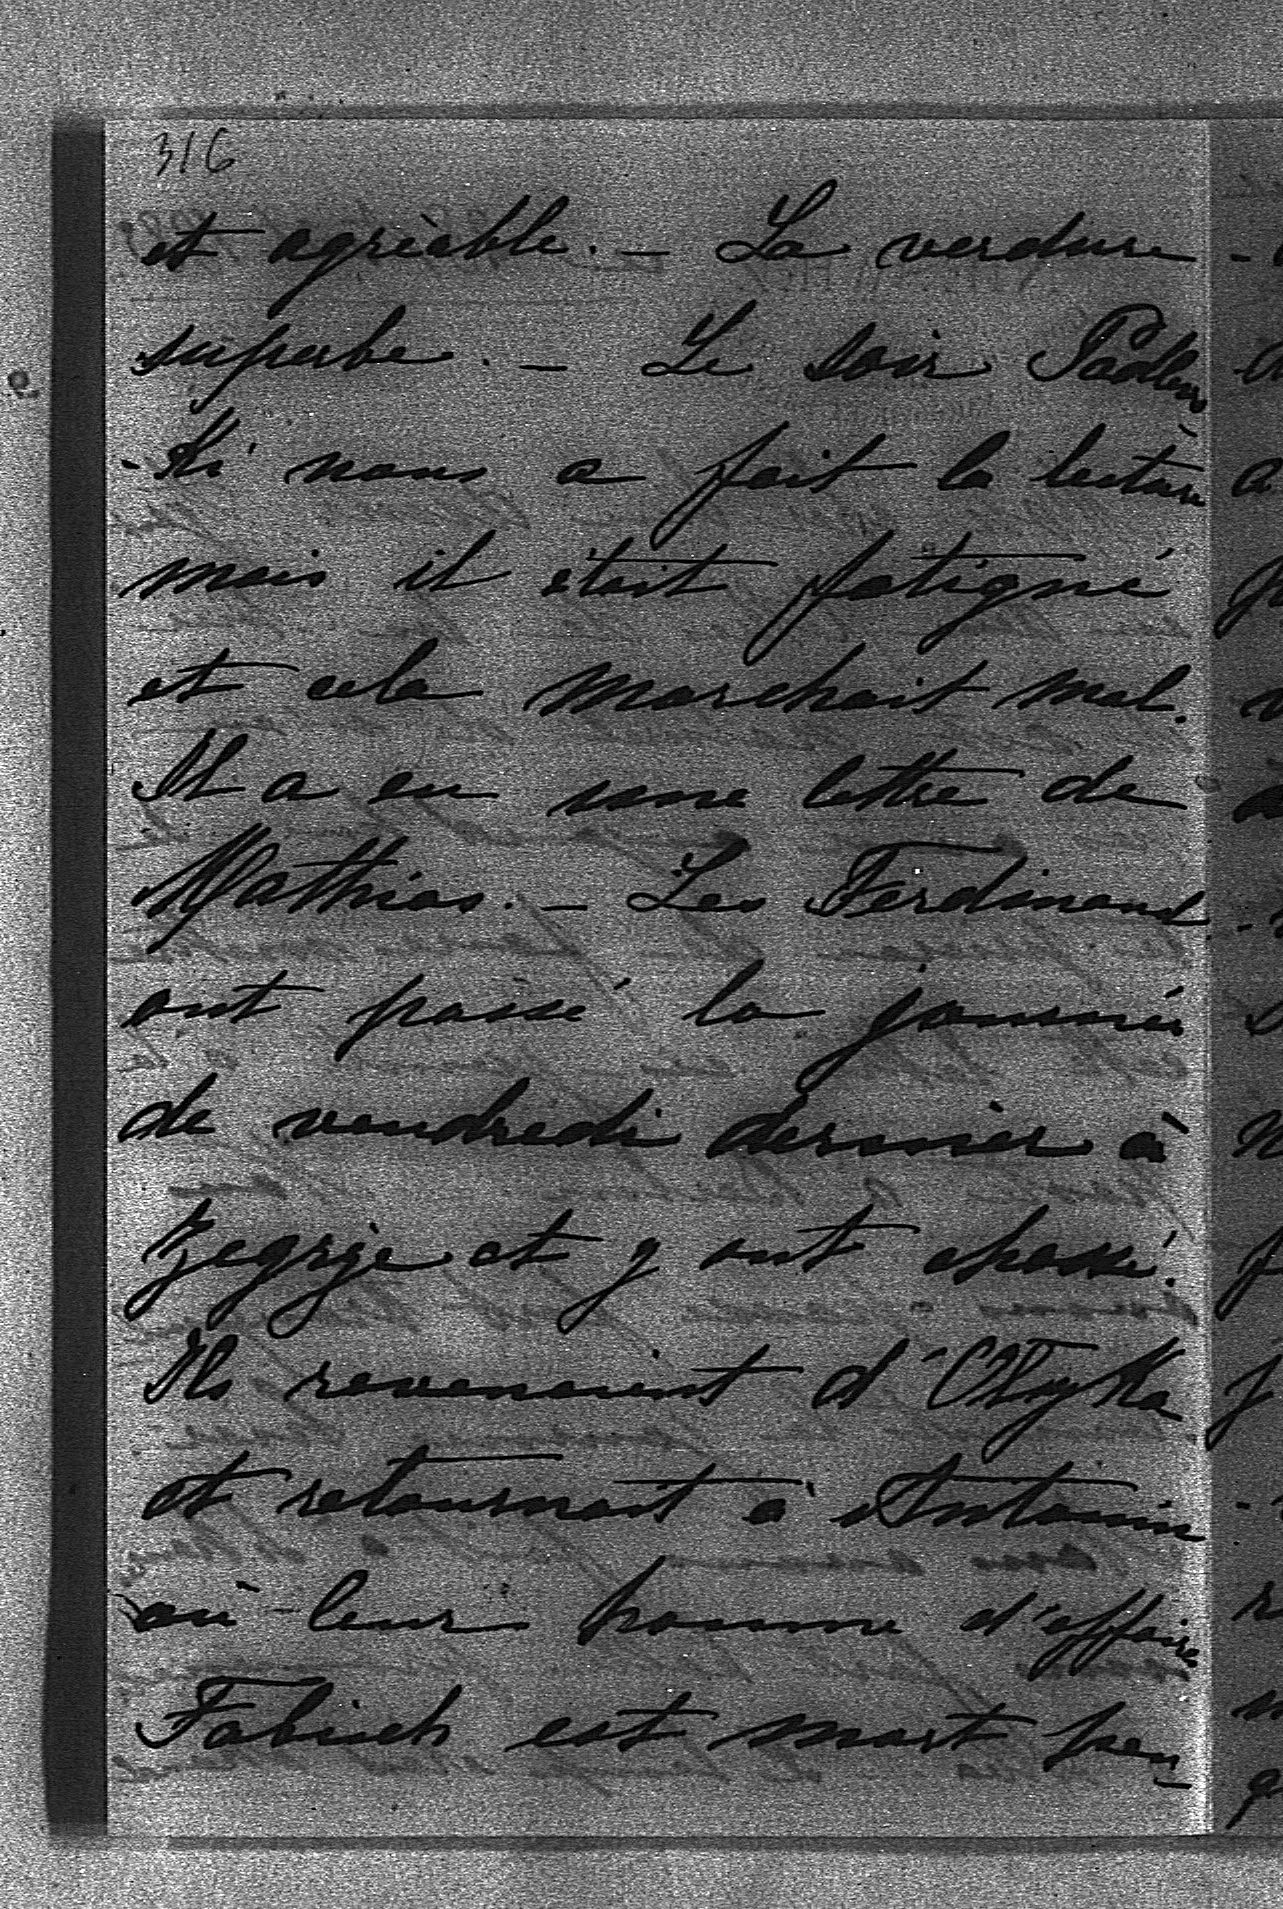 316
et agréable. – La verdure
superbe. – Le soir
-ki nous a fait la lecture
mais il était fatigué
et cela marchait mal.
Il a eu une lettre de
Mathias. – Les Ferdinand
ont passé la journée
de vendredi dernier à
Zegrze et y ont chassé.
Ils revenaient d'Ołyka
et retournait à Antonin
où leur homme d'affaire
est mort pen-